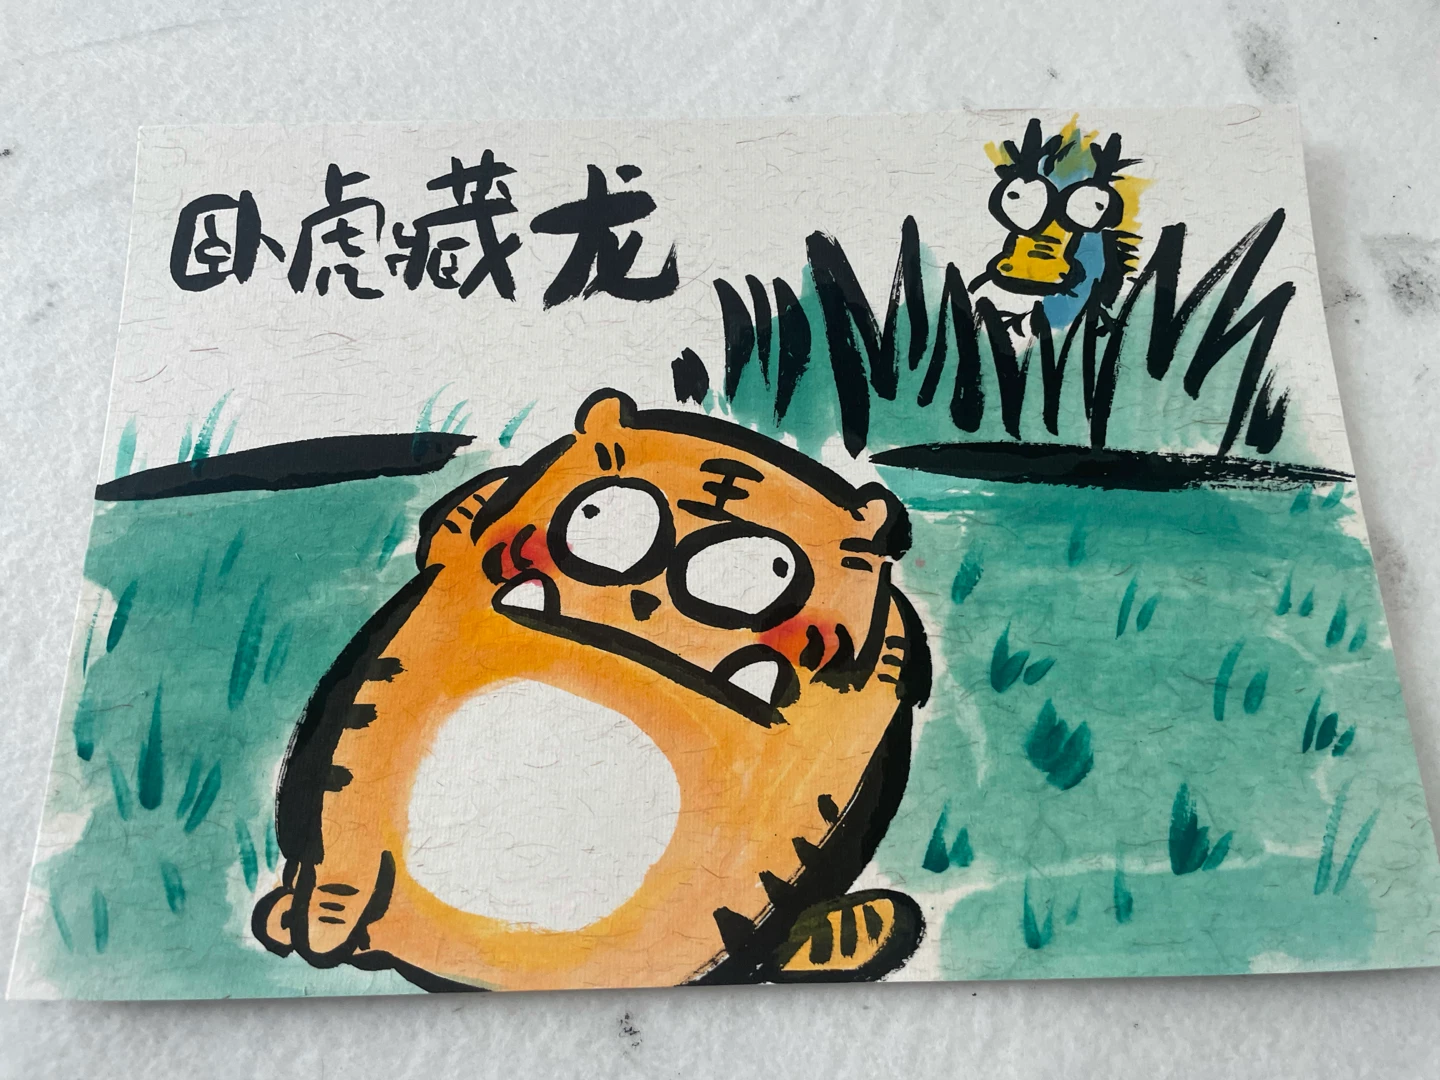 卧虎藏龙
王